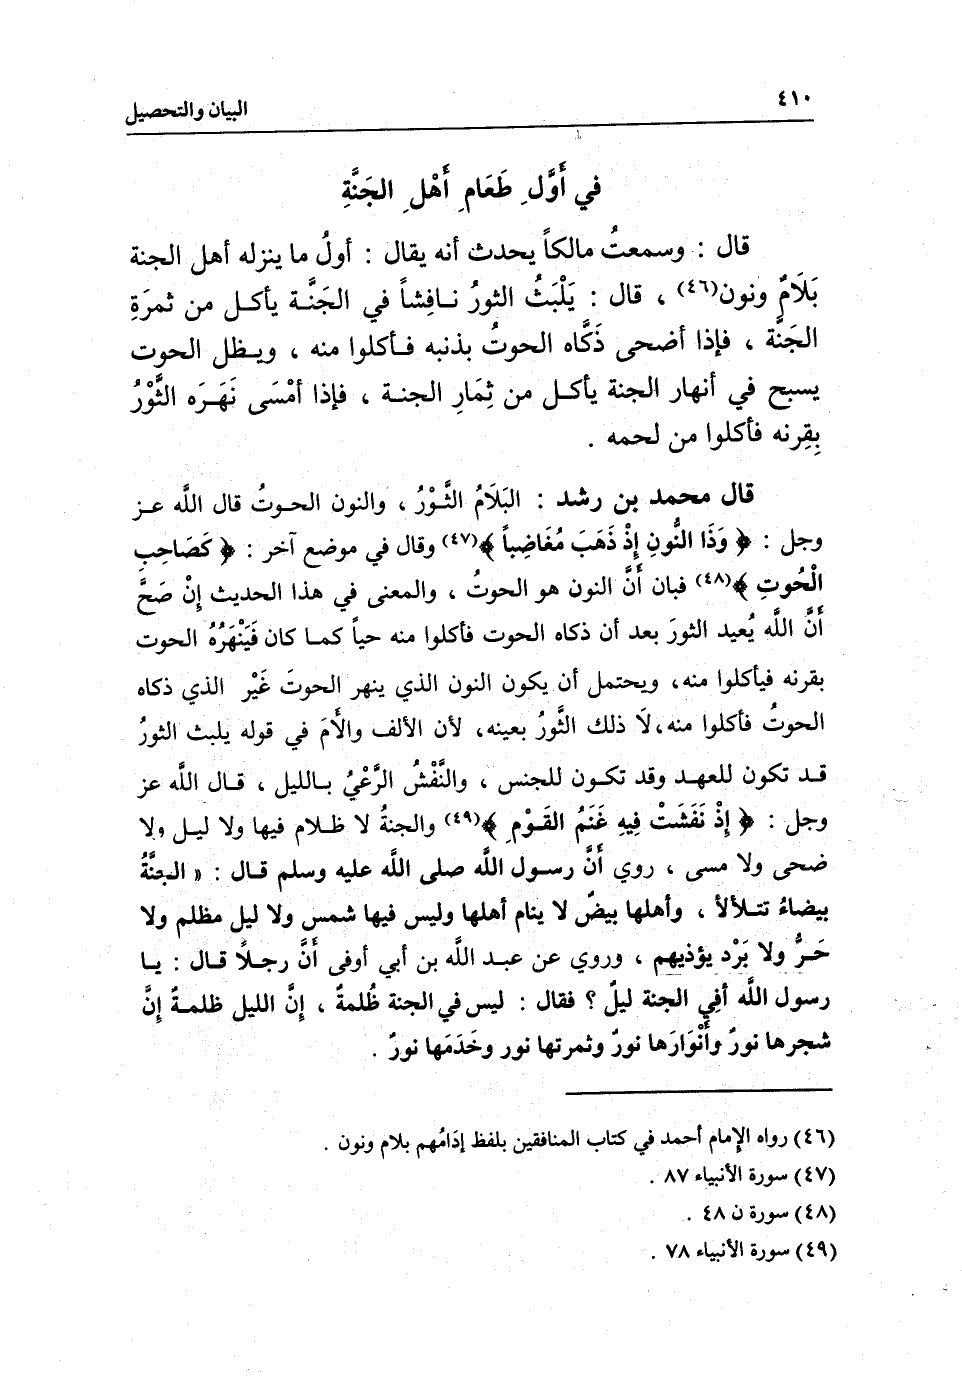 ٤١٠
البيان والتحصيل
في أَوَّلِ طَعَامِ أَهْلِ الجَنَّةِ
قال : وسمعتُ مالكاً يحدث أنه يقال : أولُ ما ينزله أهل الجنة
بَلَامٌ ونون(٤٦) ، قال : يَلْبَثُ الثورُ نافِشاً في الجَنَّة يأكل من ثمرَةِ
الجَنَّة ، فإذا أضحى ذَكَّاه الحوتُ بذنبه فأكلوا منه ، ويظل الحوت
يسبح في أنهار الجنة يأكل من ثِمَارِ الجنة ، فإذا أمْسَى نَهَرَه الثَّوْرُ
بِقِرنه فأكلوا من لحمه .
قال محمد بن رشد : البَلَامُ الثَّوْرُ ، والنون الحوتُ قال اللَّه عز
وجل : ﴿ وَذَا النُّونِ إِذْ ذَهَبَ مُغَاضِباً ﴾(٤٧) وقال في موضع آخر : ﴿ كَصَاحِبِ
الْحُوتِ ﴾(٤٨) فبان أَنَّ النون هو الحوتُ ، والمعنى في هذا الحديث إنْ صَحَّ
أَنَّ اللَّه يُعيد الثورَ بعد أن ذكاه الحوت فأكلوا منه حياً كما كان فَيَنْهَرُهُ الحوت
بقرنه فيأكلوا منه، ويحتمل أن يكون النون الذي ينهر الحوتَ غَيْر الذي ذكاه
الحوتُ فأكلوا منه،لَا ذلك الثَّورُ بعينه، لأن الألف والأمَ في قوله يلبث الثورُ
قد تكون للعهد وقد تكون للجنس ، والنَّفْشُ الرَّعْيُ بالليل ، قال اللَّه عز
وجل : ﴿ إِذْ نَفَشَتْ فِيهِ غَنَمُ القَوْمِ ﴾(٤٩) والجنةُ لا ظلام فيها ولا ليل ولا
ضحى ولا مسى ، روي أَنَّ رسول اللَّه صلى اللَّه عليه وسلم قال : « الجنَّةُ
بيضاءُ تتلألأ ، وأهلها بيضٌ لا ينام أهلها وليس فيها شمس ولا ليل مظلم ولا
حَرٌّ ولا بَرْد يؤذيهم ، وروي عن عبد اللَّه بن أبي أوفى أَنَّ رجلاً قال : يا
رسول اللَّه أفِي الجنة ليلٌ ؟ فقال : ليس في الجنة ظُلمةٌ ، إنَّ الليل ظلمةٌ إنَّ
شجرها نورٌ وأَنْوَارَها نورٌ وثمرتها نور وخَدَمَها نورٌ .
(٤٦) رواه الإمام أحمد في كتاب المنافقين بلفظ إدَامُهم بلام ونون .
(٤٧) سورة الأنبياء ٨٧ .
(٤٨) سورة ن ٤٨ .
(٤٩) سورة الأنبياء ٧٨ .